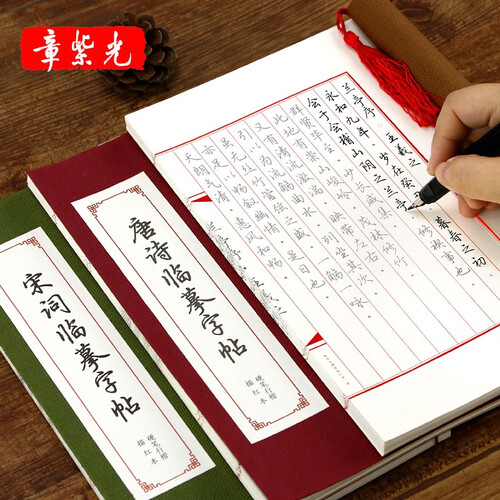 章紫光
兰亭序 王羲之
永和九年岁在癸 暮春之初
会于会稽山阴之兰亭修禊事也
群贤毕至少长咸集
此地有崇山峻岭茂林修竹
又有清流激湍映带左右
引以为流觞曲水列坐其次
虽无丝竹管弦之盛一觞一咏
亦足以畅叙幽情是日也
天朗气清惠风和畅
唐诗临摹字帖
硬笔行楷
描红本
宋词临摹字帖
硬笔行楷
描红本